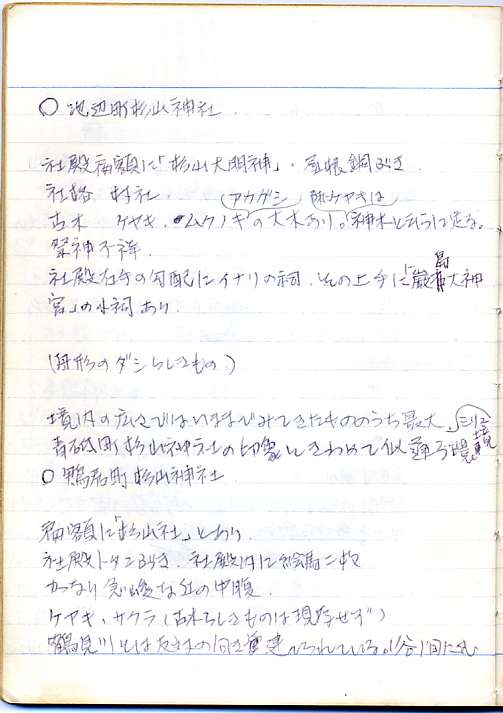 ○ 池辺町杉山神社
社殿扁額に「杉山大明神」・屋根銅ぶき.
社格 村社
古木 ケヤキ.ムクノキの大木あり。神木と云うに足る。
アカガシ
ケヤキは
祭神不祥.
社殿右手の勾配にイナリの祠.その上手に「厳島大神
宮」の小祠あり.
(舟形のダシらしきもの.)
境内の広さではいままでみてきたもののうち最大.
青砥町杉山神社の
きわめて似
○ 鴨居町杉山神社
扁額に「杉山社」とあり.
社殿トタンぶき.社殿内に絵馬二枚
かなり急峻な丘の中腹.
ケヤキ、サクラ(古木らしきものは現存せず)
鶴見川とは反対の向き 建てられている。